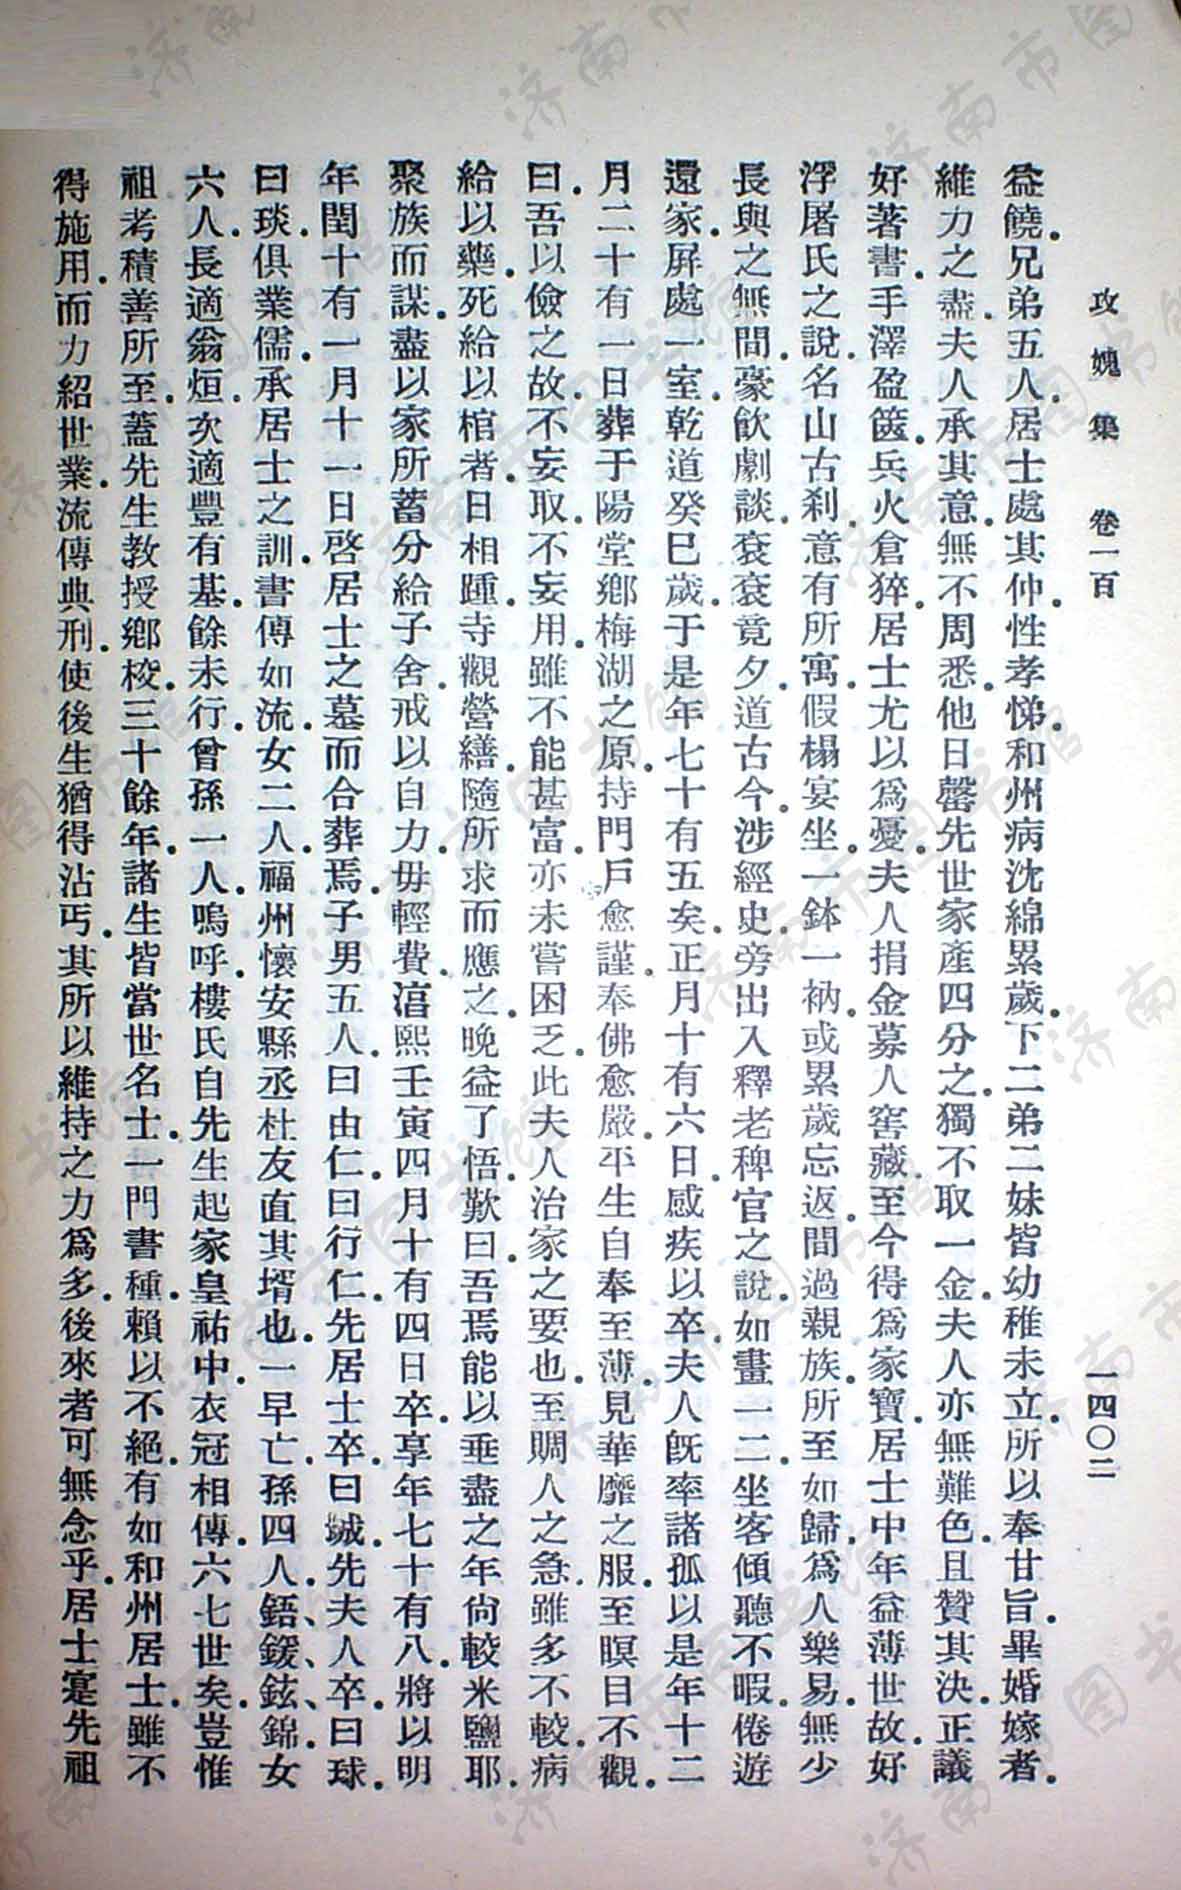 攻媿集　卷一百　一四〇二
益饒．兄弟五人．居士處其仲．性孝悌．和州病沈綿累歲．下二弟二妹皆幼稚未立．所以奉甘旨．畢婚嫁者．
維力之盡．夫人承其意．無不周悉．他日罄先世家產四分之．獨不取一金．夫人亦無難色．且贊其決．正議
好著書．手澤盈篋．兵火倉猝．居士尤以爲憂．夫人捐金募人窖藏．至今得爲家寶．居士中年益薄世故．好
浮屠氏之說．名山古刹．意有所寓．假榻宴坐．一鉢一衲．或累歲忘返．間過親族．所至如歸．爲人樂易．無少
長與之無間．豪飲劇談．袞袞竟夕．道古今．涉經史．旁出入釋老稗官之說．如畫一二．坐客傾聽不暇．倦遊
還家．屏處一室．乾道癸巳歲．于是年七十有五矣．正月十有六日．感疾以卒．夫人旣率諸孤以是年十二
月二十有一日葬于陽堂鄉梅湖之原．持門戶愈謹．奉佛愈嚴．平生自奉至薄．見華靡之服．至瞑目不觀．
曰．吾以儉之故．不妄取．不妄用．雖不能甚富．亦未嘗困乏．此夫人治家之要也．至賙人之急．雖多不較．病
給以藥．死給以棺者．日相踵．寺觀營繕．隨所求而應之．晚益了悟．歎曰．吾焉能以垂盡之年尙較米鹽耶．
聚族而謀．盡以家所蓄分給子舍．戒以自力．毋輕費．淳熙壬寅四月十有四日卒．享年七十有八．將以明
年閏十有一月十一日啓居士之墓而合葬焉．子男五人．曰由仁．曰行仁．先居士卒．曰鍼．先夫人卒．曰球．
曰琰．俱業儒．承居士之訓．書傳如流．女二人．福州懷安縣丞杜友直其壻也．一早亡．孫四人．鋙、鍰、鉉、錦．女
六人．長適翁烜．次適豐有基．餘未行．曾孫一人．嗚呼．樓氏自先生起家皇祐中．衣冠相傳．六七世矣．豈惟
祖考積善所至．蓋先生教授鄉校．三十餘年．諸生皆當世名士．一門書種．賴以不絕．有如和州居士．雖不
得施用．而力紹世業．流傳典刑．使後生猶得沾丐．其所以維持之力爲多．後來者可無念乎．居士寔先祖